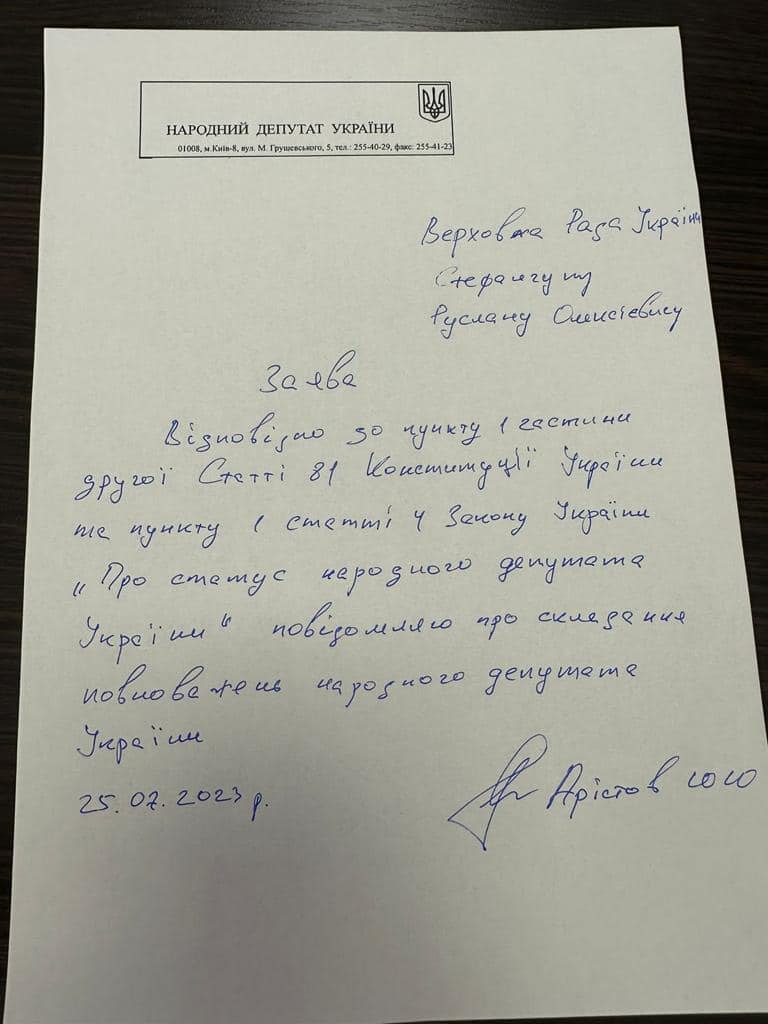 НАРОДНИЙ ДЕПУТАТ УКРАЇНИ
01008, м.Київ-8, вул. М. Грушевського, 5, тел.: 255-40-29, факс: 255-41-23
Верховна Рада України
Стефанчуку
Руслану Олексієвичу
Заява
Відповідно до пункту 1 частини
другої Статті 81 Конституції України
та пункту 1 статті 4 Закону України
„Про статус народного депутата
України“ повідомляю про складання
повноважень народного депутата
України
25.07.2023 р. Арістов Ю Ю